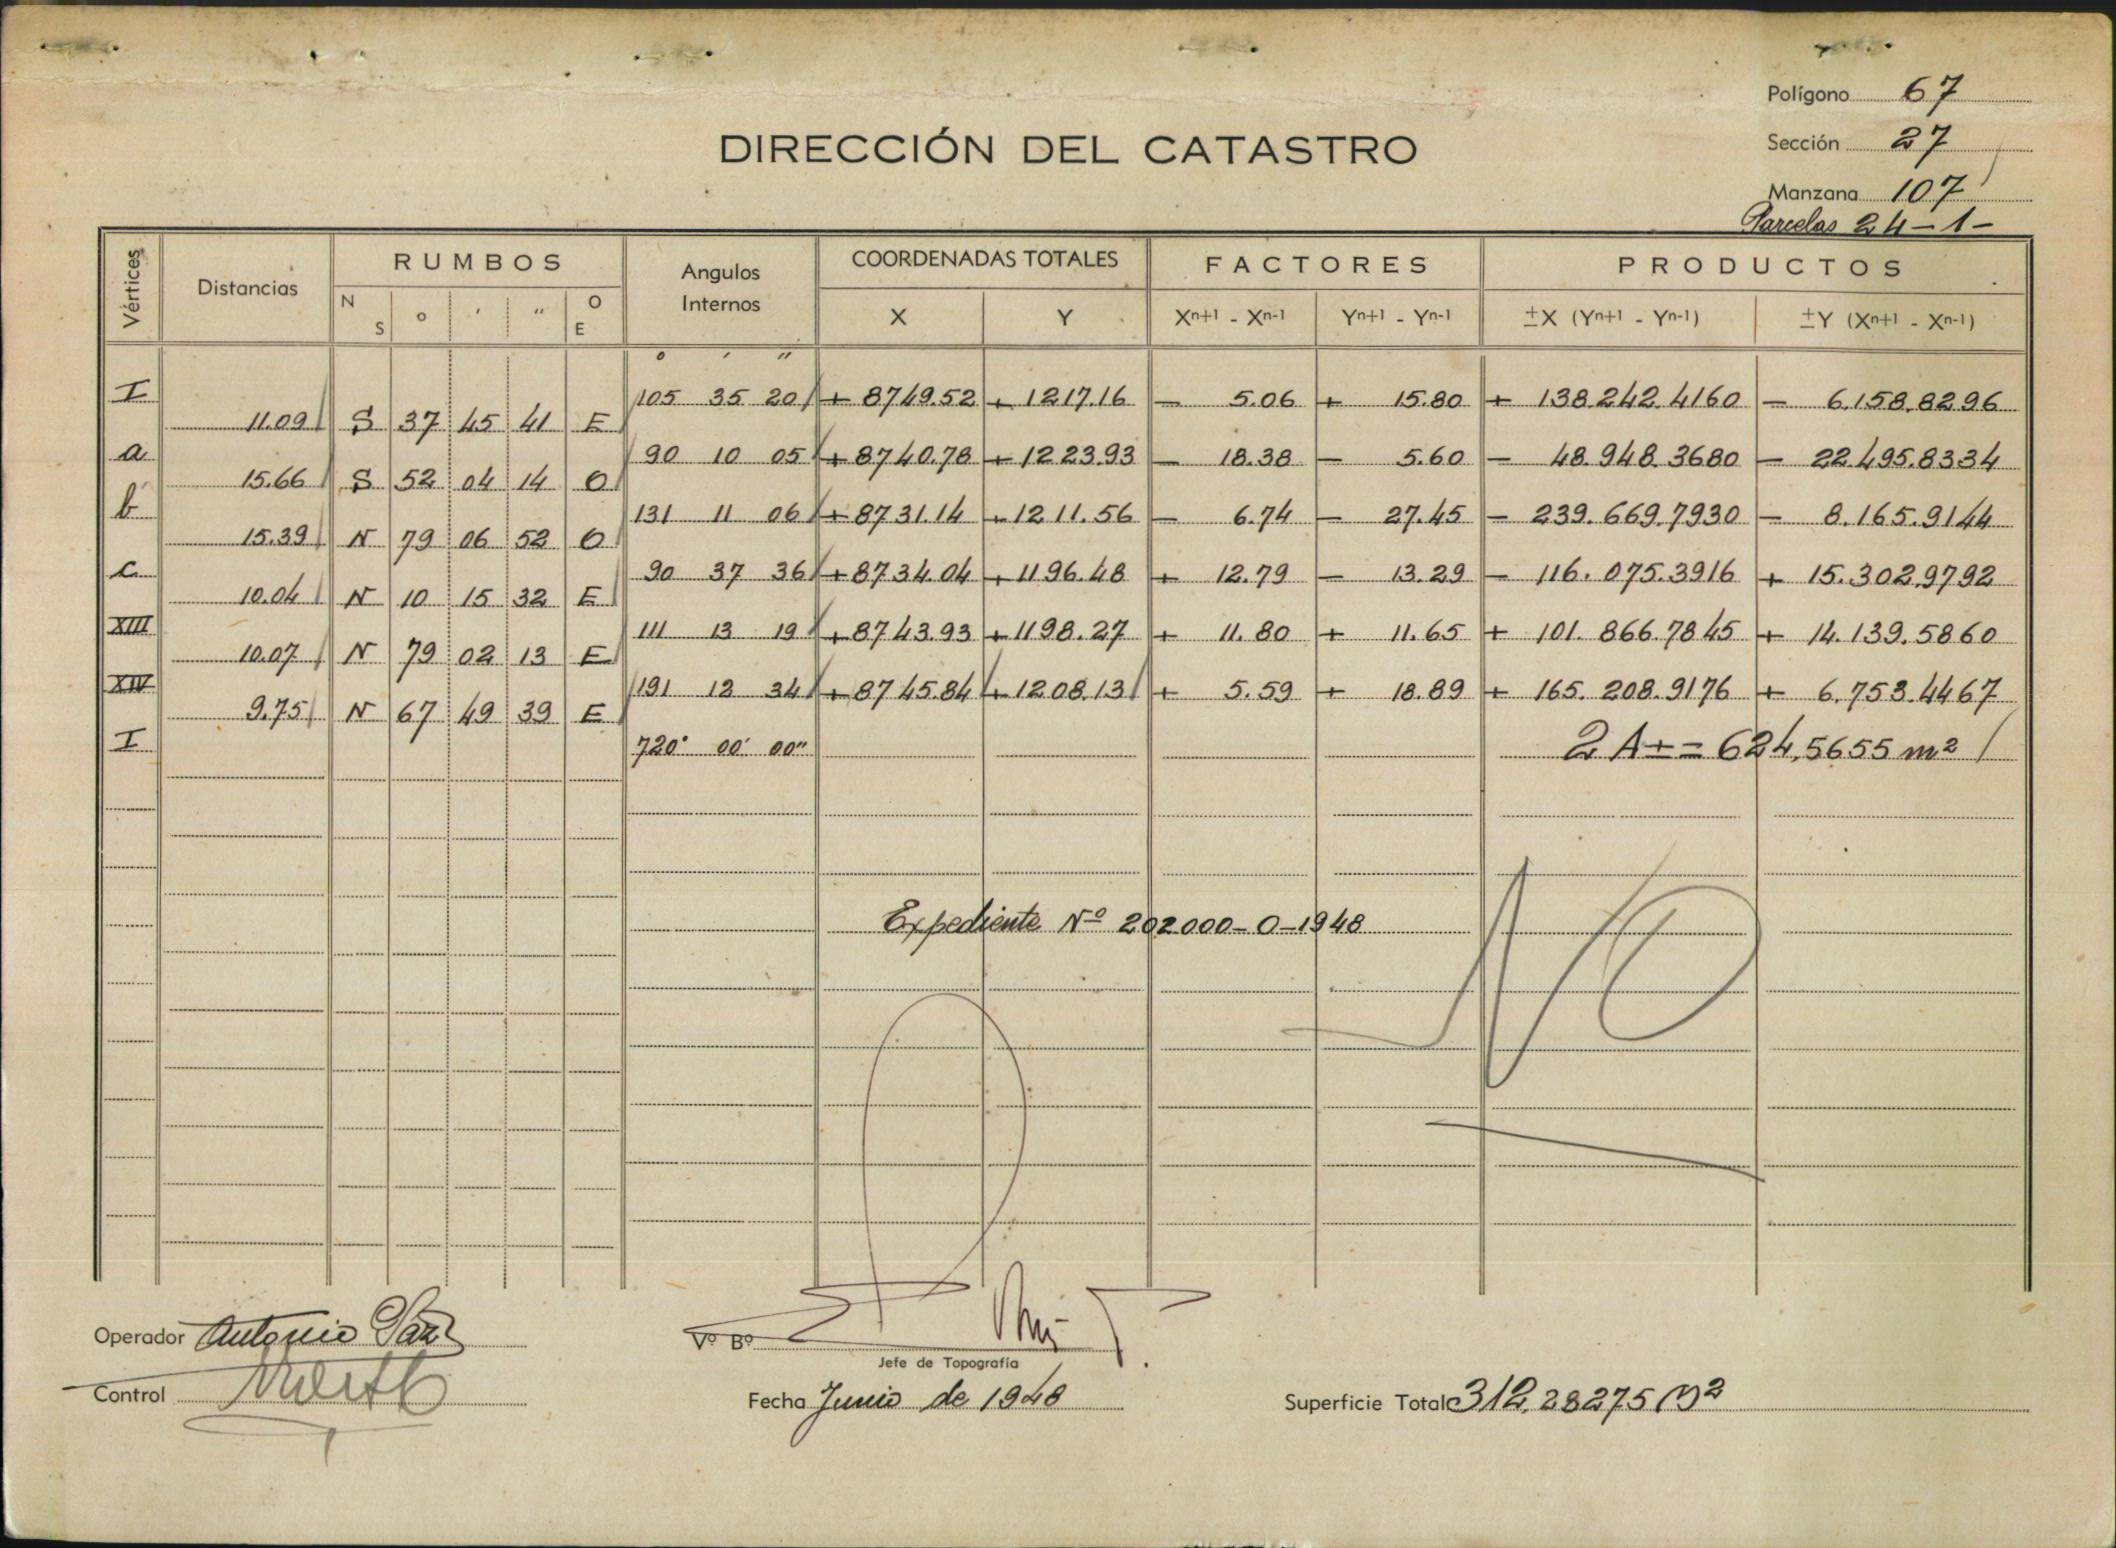 Polígono 67
Sección 27
DIRECCIÓN DEL CATASTRO
Manzana 107
Parcelas 24-1-
Vértices Distancias RUMBOS Angulos Internos COORDENADAS TOTALES FACTORES PRODUCTOS
N S o ' '' O E X Y Xn+1 - Xn-1 Yn+1 - Yn-1 ±X (Yn+1 - Yn-1) ±Y (Xn+1 - Xn-1)
o ' ''
I 105 35 20 + 8749.52 + 1217.16 - 5.06 + 15.80 + 138.242.4160 - 6.158.8296
11.09 S 37 45 41 E
a 90 10 05 + 8740.78 + 1223.93 - 18.38 - 5.60 - 48.948.3680 - 22.495.8334
15.66 S 52 04 14 O
b 131 11 06 + 8731.14 + 1211.56 - 6.74 - 27.45 - 239.669.7930 - 8.165.9144
15.39 N 79 06 52 O
c 90 37 36 + 8734.04 + 1196.48 + 12.79 - 13.29 - 116.075.3916 + 15.302.9792
10.04 N 10 15 32 E
XIII 111 13 19 + 8743.93 + 1198.27 + 11.80 + 11.65 + 101.866.7845 + 14.139.5860
10.07 N 79 02 13 E
XIV 191 12 34 + 8745.84 + 1208.13 + 5.59 + 18.89 + 165.208.9176 + 6.753.4467
9.75 N 67 49 39 E
I 720° 00' 00'' 2 A ± = 624,5655 m²
Expediente Nº 202000-0-1948
NO
Operador Antonio Páz
Vº Bº
Jefe de Topografía
Control
Fecha Junio de 1948
Superficie Total 312,28275 M²